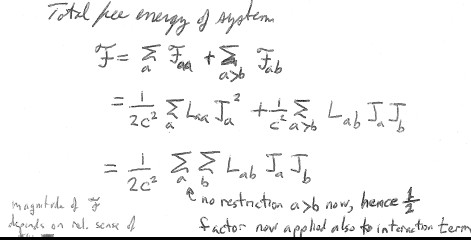 Total free energy of system
ℱ = Σ_a ℱ_aa + Σ_{a>b} ℱ_ab
= 1/2c² Σ_a L_aa J_a² + 1/c² Σ_{a>b} L_ab J_a J_b
= 1/2c² Σ_a Σ_b L_ab J_a J_b
no restriction a>b now, hence 1/2
factor now applied also to interaction term
magnitude of ℱ
depends on rel. sense of